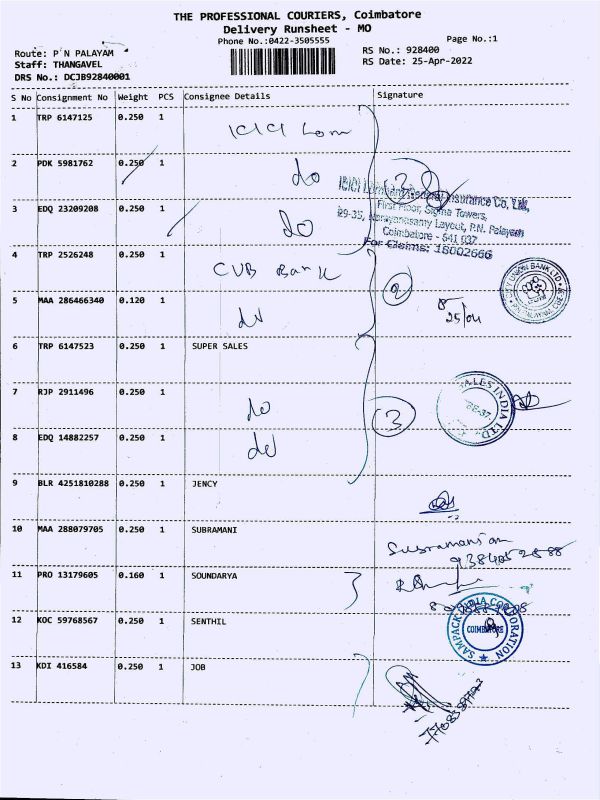 THE PROFESSIONAL COURIERS, Coimbatore
Delivery Runsheet - MO
Phone No.:0422-3505555
Page No.:1
Route: P N PALAYAM
RS No.: 928400
Staff: THANGAVEL
RS Date: 25-Apr-2022
DRS No.: DCJB92840001
S No Consignment No Weight PCS Consignee Details Signature
1 TRP 6147125 0.250 1 ICICI Lom
2 PDK 5981762 0.250 1 do
3 EDQ 23209208 0.250 1 do
3
ICICI Lombard General Insurance Co. Ltd.,
First Floor, Sigma Towers,
29-35, Narayanasamy Layout, P.N. Palayam
Coimbatore - 641 037
For Claims: 18002666
4 TRP 2526248 0.250 1 CUB Bank
2
CITY UNION BANK LTD
5 MAA 286466340 0.120 1 do
25/04
6 TRP 6147523 0.250 1 SUPER SALES
7 RJP 2911496 0.250 1 do
3
SALES INDIA LTD.
CBE-37.
8 EDQ 14882257 0.250 1 do
9 BLR 4251810288 0.250 1 JENCY
10 MAA 288079705 0.250 1 SUBRAMANI
Subramanian
11 PRO 13179605 0.160 1 SOUNDARYA
12 KOC 59768567 0.250 1 SENTHIL
SAMPACK INDIA CORPORATION
COIMBATORE
13 KDI 416584 0.250 1 JOB